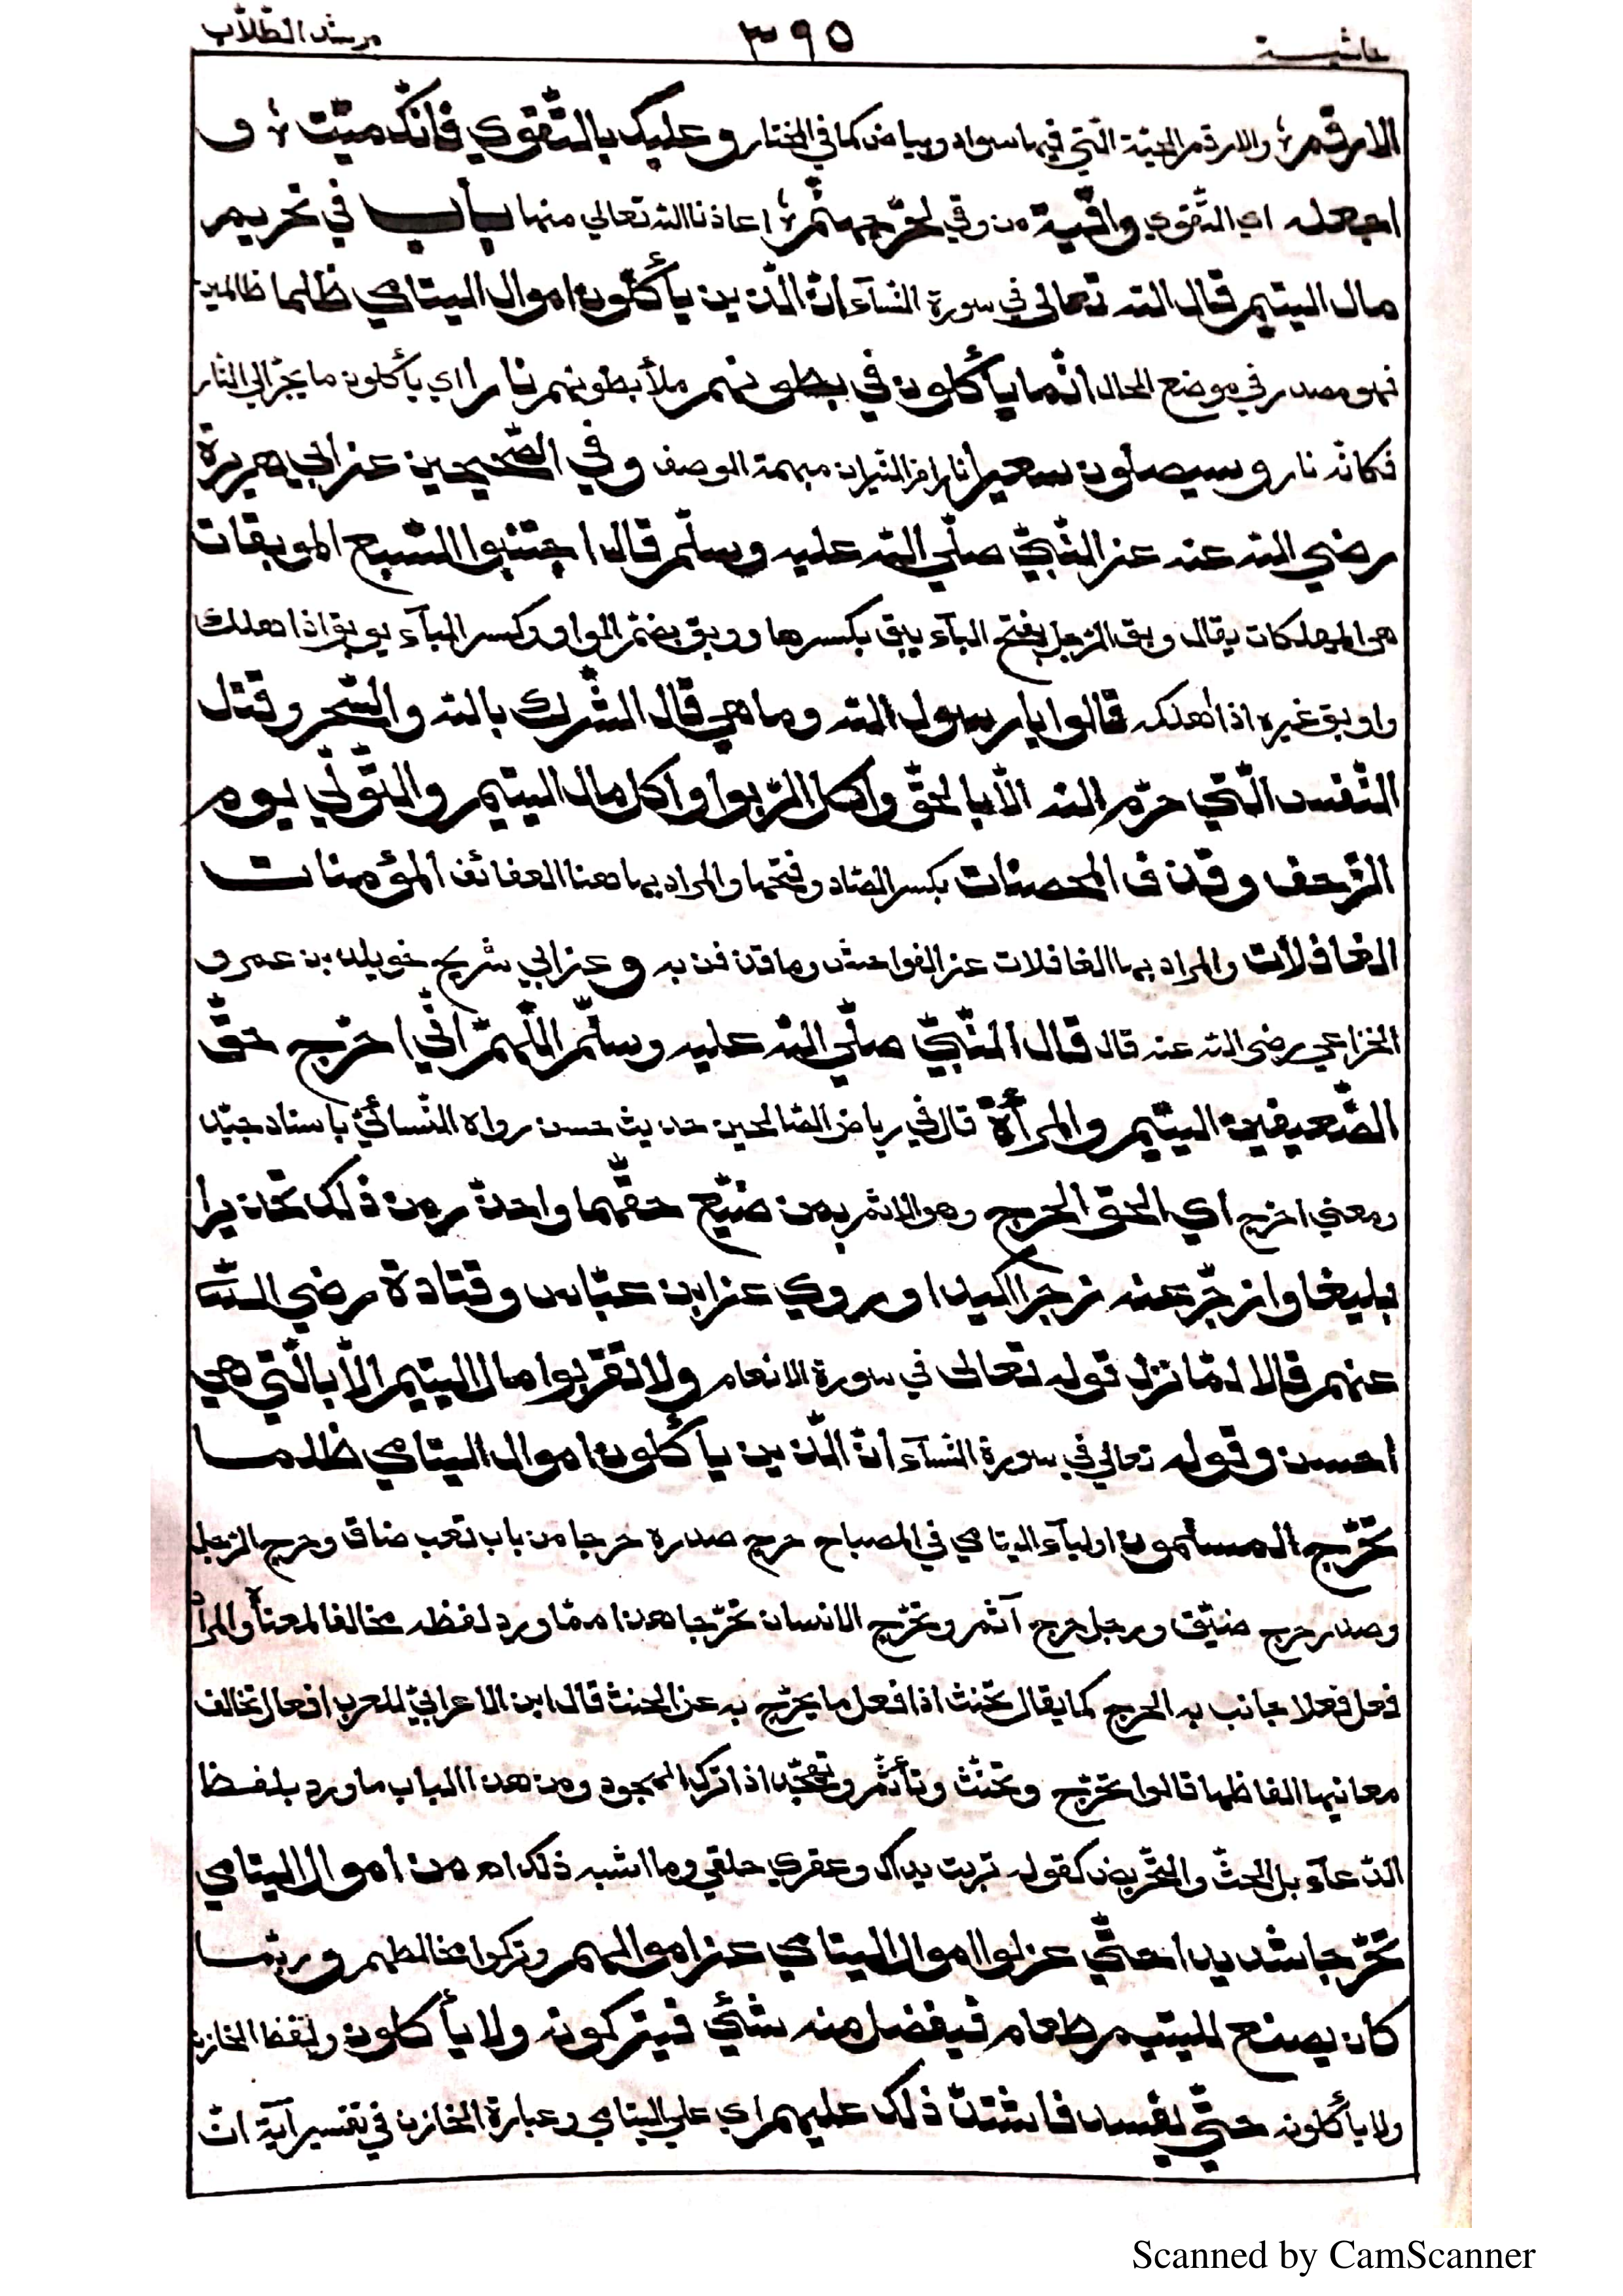 حاشية ٣٩٥ مرشد الطّلّاب
الارقم؛ والارقم الحيّة الّتي فيها سواد وبياض كما في المختار وعليك بالتّقوي فانّك ميّت؛ و
اجعله اي التّقوي واقية من وقي لحرّ جهنّم؛ اعاذنا الله تعالي منها باب في تحريم
مال اليتيم قال الله تعالى في سورة النّسآء انّ الّذين يأكلون اموال اليتامي ظلما ظالمين
فهو مصدر في موضع الحال انّما يأكلون في بطونهم ملأ بطونهم نارا اي يأكلون ما يجرّ الي النّار
فكانّه نار وسيصلون سعيرا نارا من النّيران مبهمة الوصف وفي الصّحيحين عن ابي هريرة
رضي الله عنه عن النّبيّ صلّي الله عليه وسلّم قال اجتنبوا السّبع الموبقات
هي المهلكات يقال وبق الرّجل بفتح البآء يبق بكسرها ووبق بضمّ الواو وكسر البآء يوبق اذا هلك
واوبق غيره اذا اهلكه قالوا يا رسول الله وما هي قال الشّرك بالله والسّحر وقتل
النّفس الّتي حرّم الله الّا بالحقّ واكل الرّبوا واكل مال اليتيم والتّولّي يوم
الزّحف وقذف المحصنات بكسر الصّاد وفتحها والمراد بها هنا العفائف المؤمنات
الغافلات والمراد بها الغافلات عن الفواحش وما قذفن به وعن ابي شريح خويلد بن عمرو
الخزاعي رضى الله عنه قال قال النّبيّ صلّي الله عليه وسلّم اللّهمّ انّي احرّج حقّ
الضّعيفين اليتيم والمرأة قال في رياض الصّالحين حديث حسن رواه النّسائيّ باسناد جيّد
ومعني احرّج اي الحق الحرج وهو الاثم بمن ضيّع حقّهما واحذّر من ذلك تحذيرا
بليغا وازجّر عنه زجرا اكيدا وروي عن ابن عبّاس وقتادة رضي الله
عنهم قالا لمّا نزل قوله تعالى في سورة الانعام ولا تقربوا مال اليتيم الّا بالّتي هي
احسن وقوله تعالي في سورة النّسآء انّ الّذين يأكلون اموال اليتامي ظلما
تحرّج المسلمون اوليآء اليتامي في المصباح حرج صدره حرجا من باب تعب ضاق وحرج الرّجل
وصدر حرج ضيّق ورجل حرج آثم وتحرّج الانسان تحرّجا هذا ممّا ورد لفظه مخالفا لمعناه والمراد
فعل فعلا جانب به الحرج كما يقال تحنّث اذا فعل ما يخرج به عن الحنث قال ابن الاعرابيّ للعرب افعال تخالف
معانيها الفاظها قالوا تحرّج وتحنّث وتأثّم وتهجّد اذا ترك الهجود ومن هذا الباب ما ورد بلفظ
الدّعآء بل الحثّ والتّحريض كقوله تربت يداك وعقري حلقي وما اشبه ذلك اه من اموال اليتامي
تحرّجا شديدا حتّي عزلوا اموال اليتامي عن اموالهم وتركوا مخالطهم وربّما
كان يصنع لليتيم طعام فيفضل منه شئ فيتركونه ولا يأكلون ولفظ الخازن
ولا يأكلونه حتّي يفسد فاشتدّ ذلك عليهم اي علي اليتامي وعبارة الخازن في تفسير آية انّ
Scanned by CamScanner